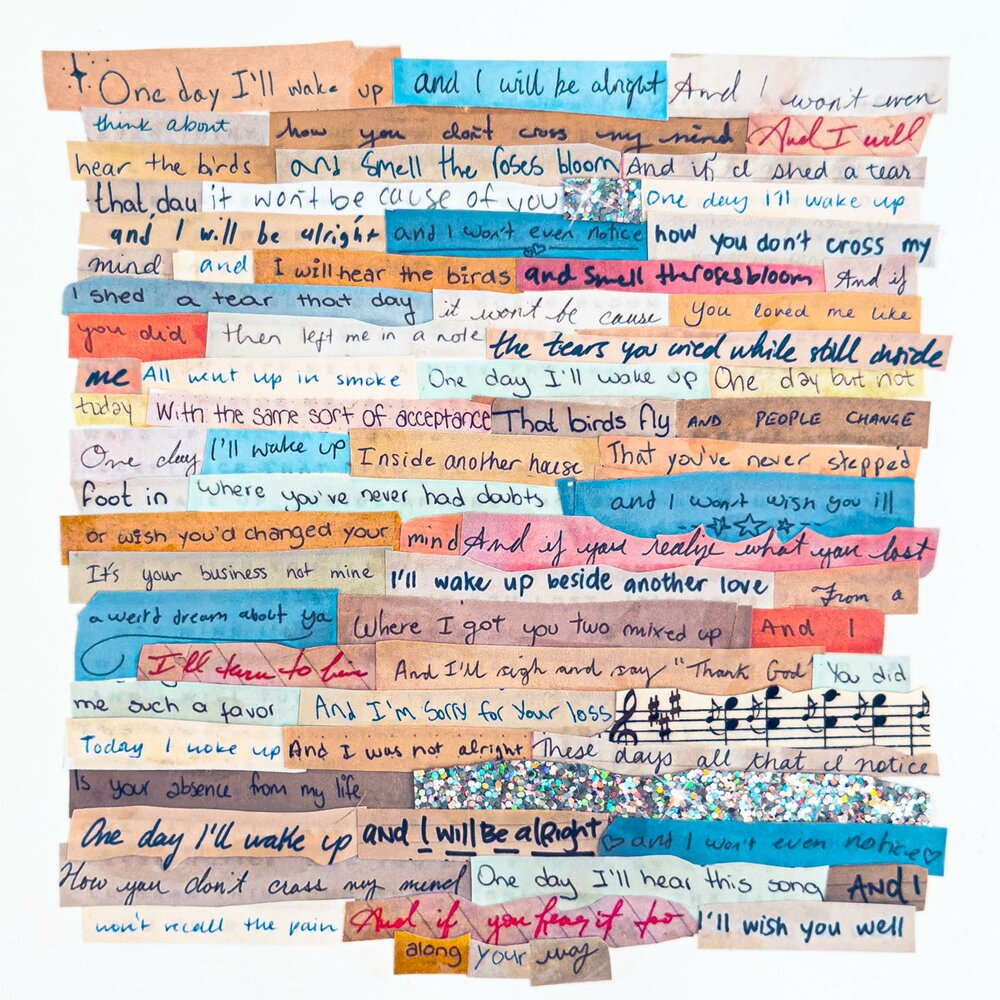 One day I'll wake up and I will be alright And I won't even
think about how you don't cross my mind And I will
hear the birds and smell the roses bloom And if I shed a tear
that day it won't be cause of you One day I'll wake up
and I will be alright and I won't even notice how you don't cross my
mind and I will hear the birds and smell the roses bloom And if
I shed a tear that day it won't be cause you loved me like
you did then left me in a note the tears you cried while still inside
me All went up in smoke One day I'll wake up One day but not
today With the same sort of acceptance That birds fly AND PEOPLE CHANGE
One day I'll wake up Inside another house That you've never stepped
foot in where you've never had doubts and I won't wish you ill
or wish you'd changed your mind And if you realize what you lost
It's your business not mine I'll wake up beside another love From a
a weird dream about ya Where I got you two mixed up And I
I'll turn to him And I'll sigh and say "Thank God" You did
me such a favor And I'm sorry for your loss
Today I woke up And I was not alright These days all that I notice
Is your absence from my life
One day I'll wake up and I will Be alRight and I won't even notice
How you don't cross my mind One day I'll hear this song AND I
won't recall the pain And if you hear it too I'll wish you well
along your way